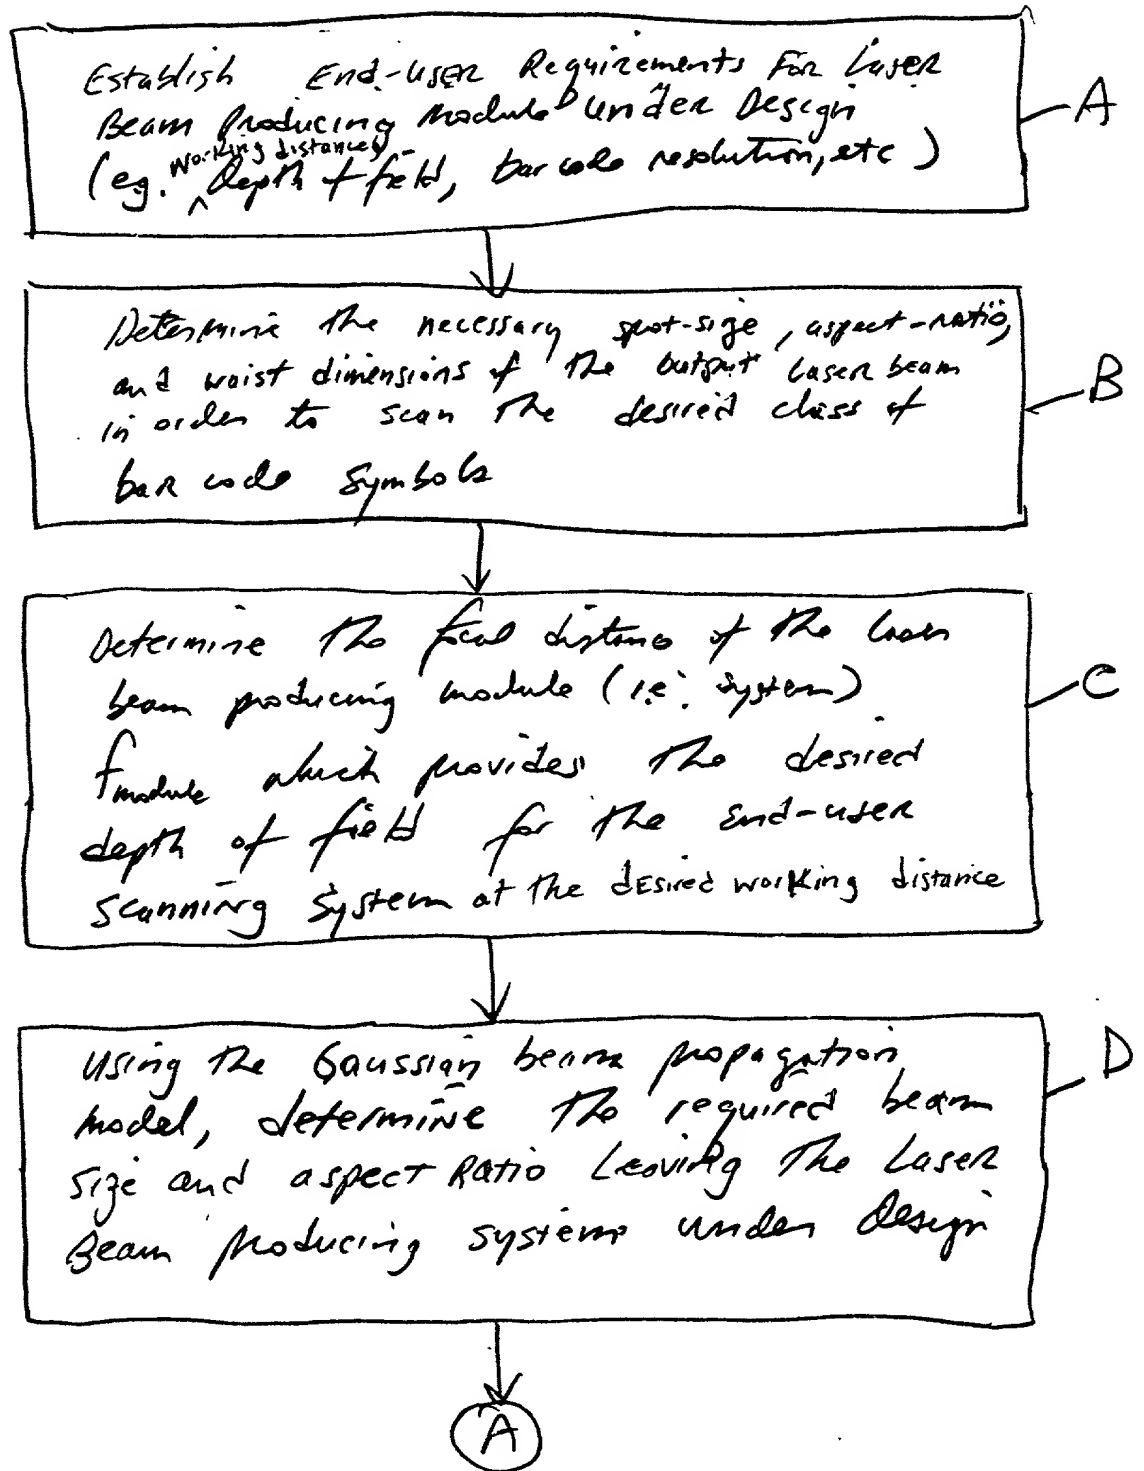 Establish End-user Requirements For Laser
Beam Producing Module under Design
(eg. ^ working distances, Depth of field, bar code resolution, etc)
A
Determine the necessary spot-size, aspect-ratio,
and waist dimensions of the output laser beam
in order to scan the desired class of
bar code symbols
B
Determine the focal distance of the laser
beam producing module (i.e. system)
fmodule which provides the desired
depth of field for the end-user
scanning system at the desired working distance
C
Using the Gaussian beam propagation
model, determine the required beam
size and aspect Ratio Leaving The Laser
Beam producing system under design
D
A